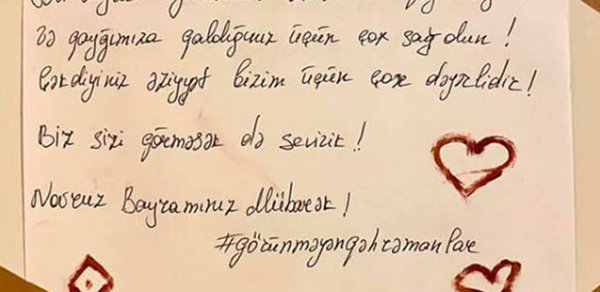 və qayğımıza qaldığınız üçün çox sağ olun!
Çəkdiyiniz əziyyət bizim üçün çox dəyərlidir!
Biz sizi görməsək də sevirik!
Novruz Bayramınız Mübarək!
#görünməyənqəhrəmanlar